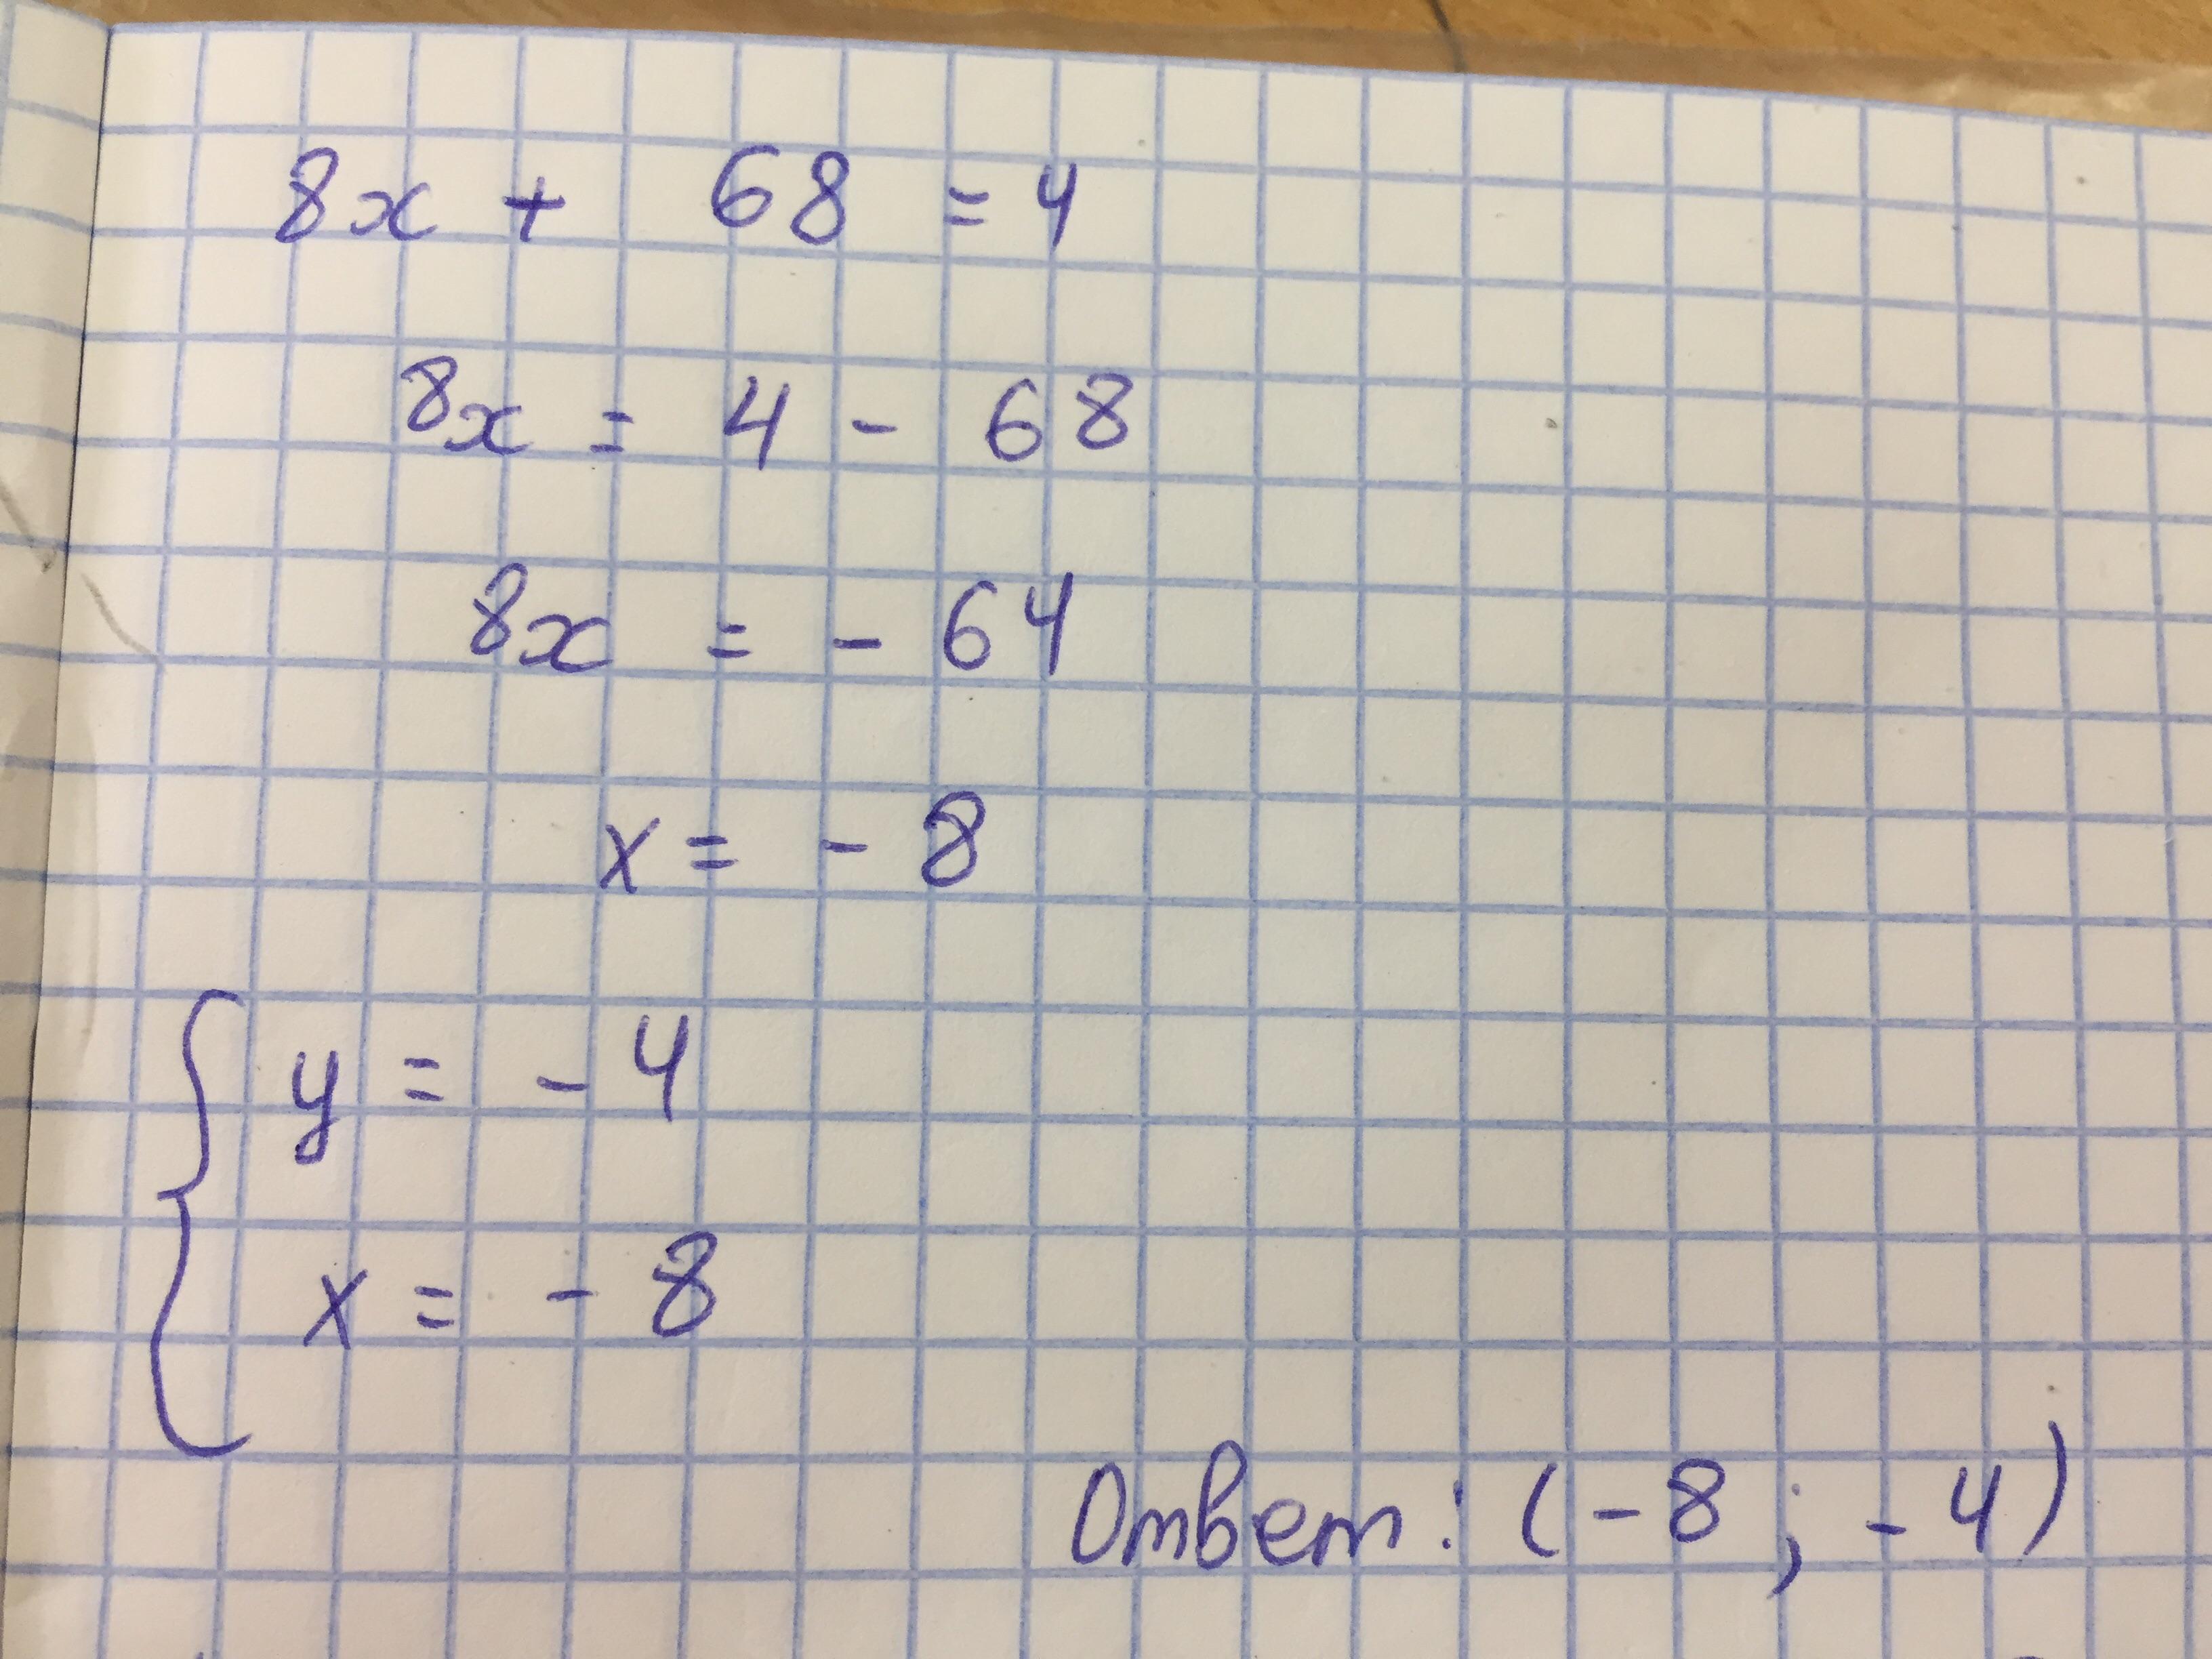 8x + 68 = 4
8x = 4 - 68
8x = - 64
x = - 8
{ y = - 4
x = - 8
Ответ: (-8 ; -4)